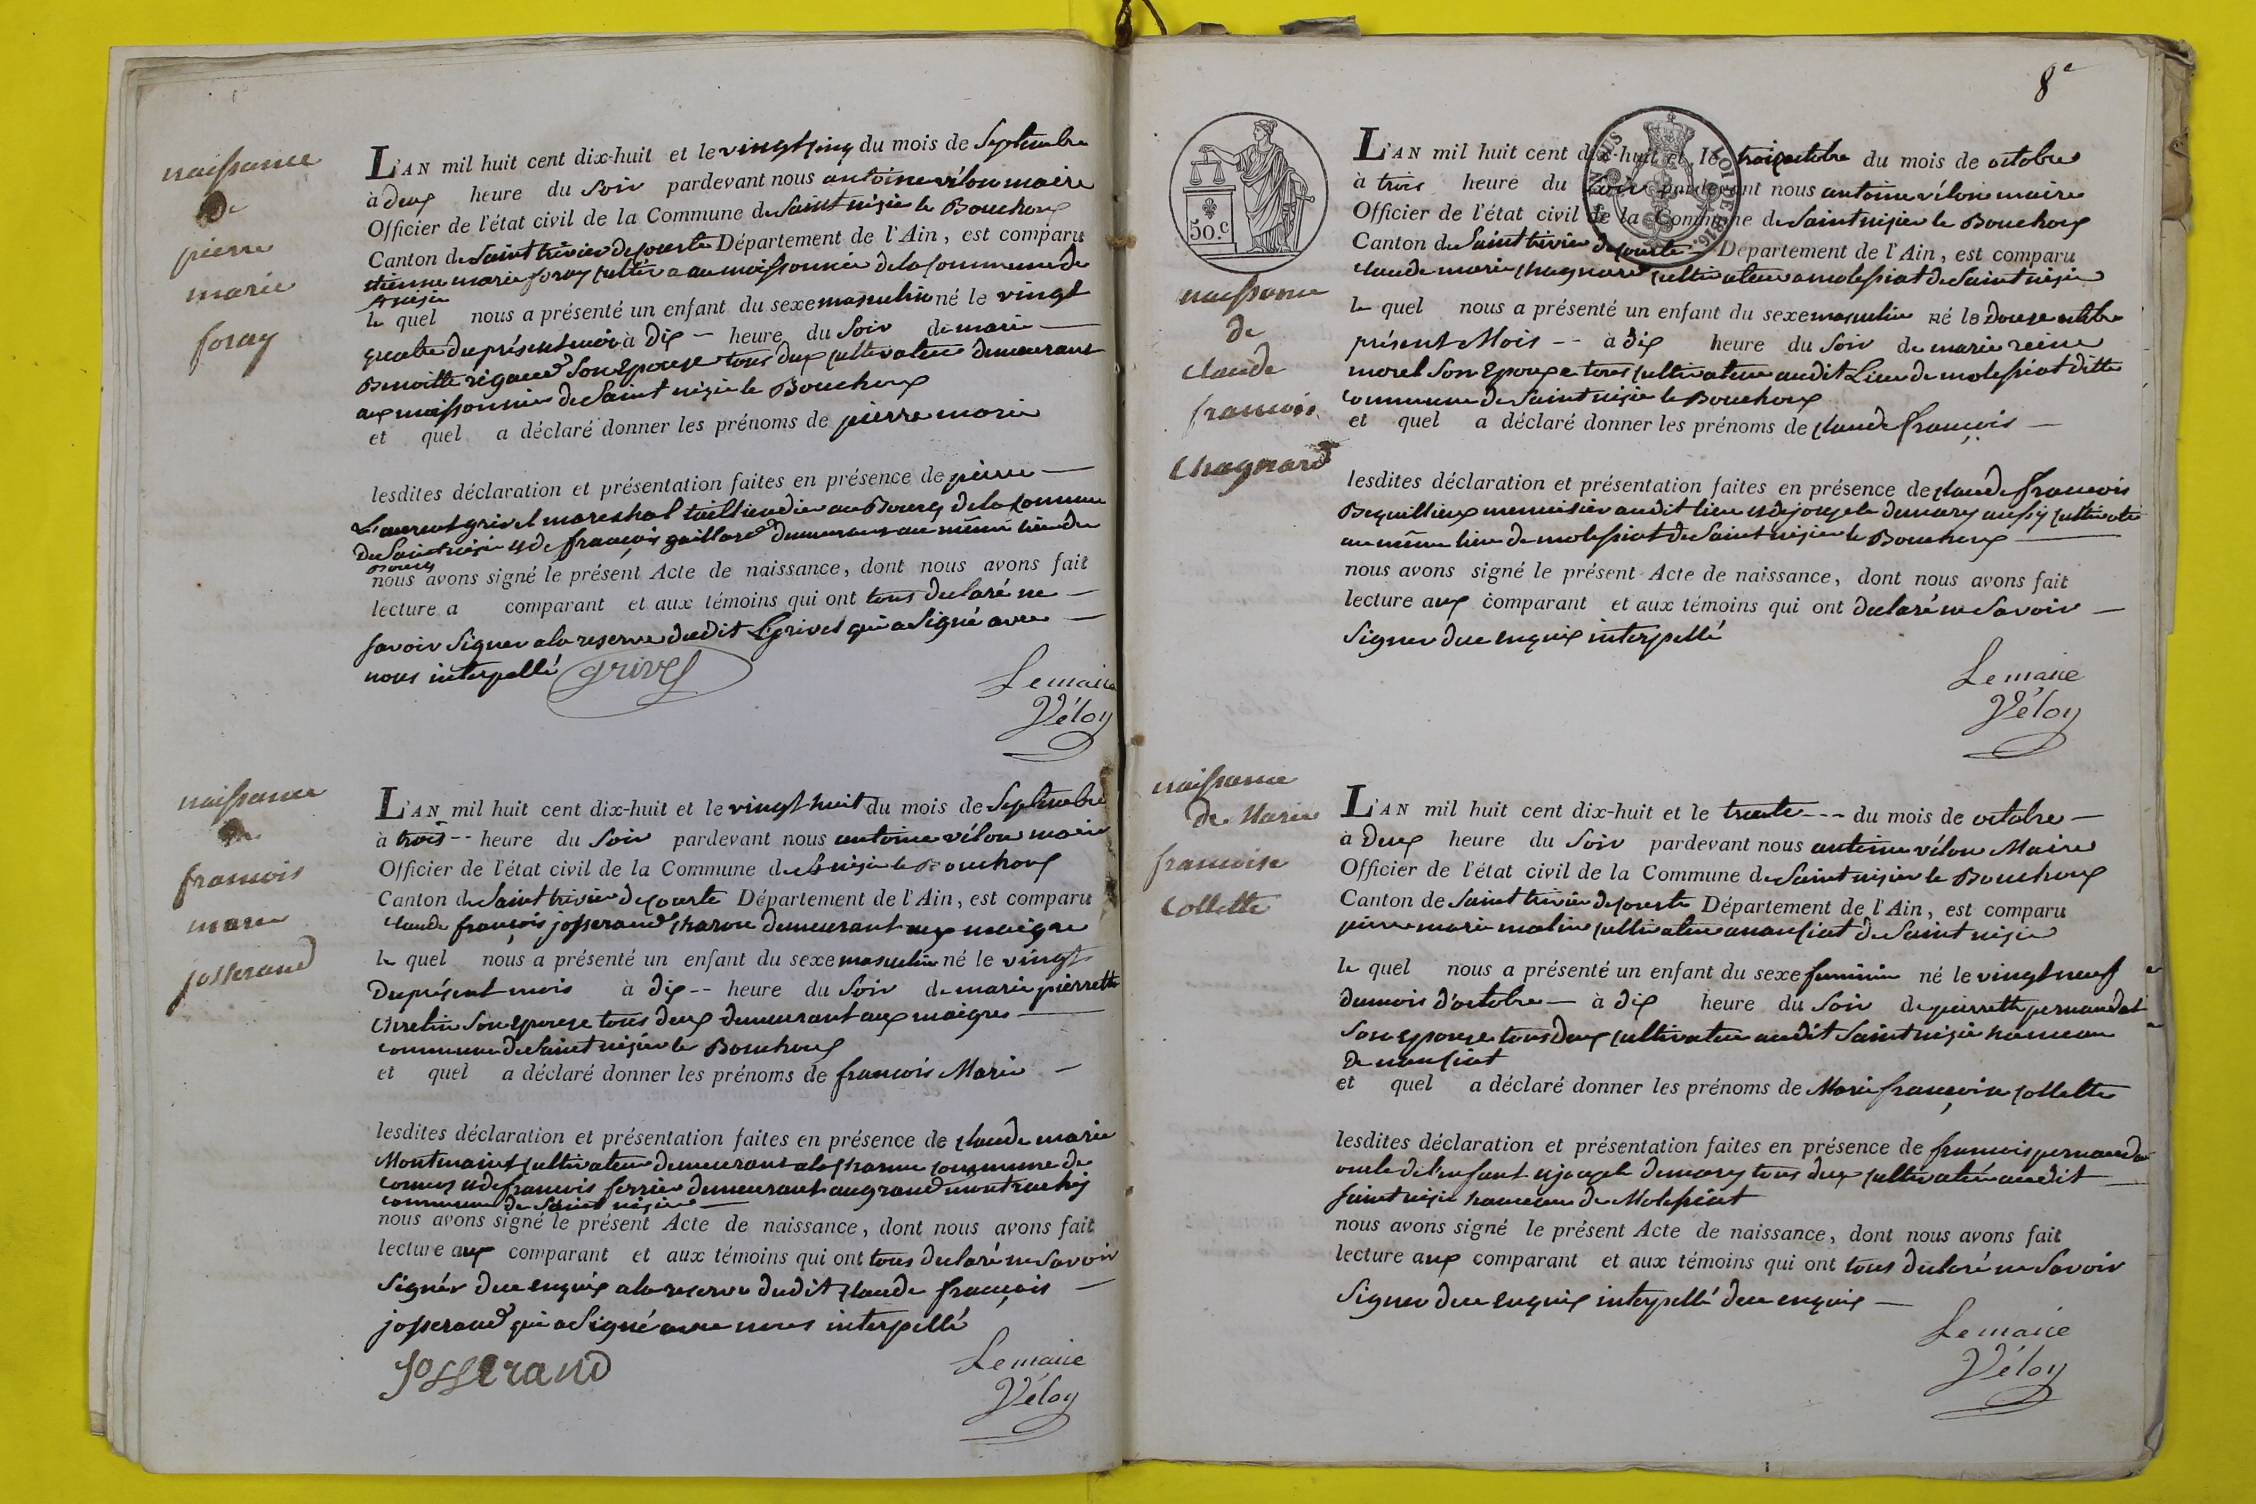 naissance
de
pierre
marie
foray
L'AN mil huit cent dix-huit et le vingt cinq du mois de Septembre
à deux heure du Soir pardevant nous antoine vélon maire
Officier de l'état civil de la Commune de Saint nizier le Bouchoux
Canton de Saint trivier de courte Département de l'Ain, est comparu
etienne marie foray cultiv a au moissonnier de la commune de
st nizier
le quel nous a présenté un enfant du sexe masculin né le vingt
quatre du présent moi à dix — heure du Soir de marie —
Benoitte rigaud Son Epouse tous dux cultivateur demeurant
aux moissonnier de Saint nizier le Bouchoux
et quel a déclaré donner les prénoms de pierre marie
lesdites déclaration et présentation faites en présence de pierre —
Laurent grivel mareshal taillandier au Bourg de la commune
de Saint nizier et de françois gaillard demeurant au même lieu du
Bourg
nous avons signé le présent Acte de naissance, dont nous avons fait
lecture a comparant et aux témoins qui ont tous declaré ne —
savoir Signer a la reserve dudit L grivel qui a Signé avec —
nous interpellé grivel
Le maire
Vélon
naissance
de
francois
marie
josserand
L'AN mil huit cent dix-huit et le vingt huit du mois de Septembre
à trois -- heure du Soir pardevant nous antoine vélon maire
Officier de l'état civil de la Commune de St nizier le Bouchoux
Canton de Saint trivier de courte Département de l'Ain, est comparu
claude françois josserand charon demeurant aux maigre
le quel nous a présenté un enfant du sexe masculin né le vingt
du présent mois à dix -- heure du Soir de marie pierrette
Chretin Son Epouse tous deux demeurant aux maigres —
commune de Saint nizier le Bouchoux
et quel a déclaré donner les prénoms de francois Marie —
lesdites déclaration et présentation faites en présence de claude marie
Montmain cultivateur demeurant a la charme commune de
cormoz et de francois ferrier demeurant au grand montrachy
commune de Saint nizier —
nous avons signé le présent Acte de naissance, dont nous avons fait
lecture aux comparant et aux témoins qui ont tous declaré ne Savoir
Signér de ce enquis a la reserve dudit claude françois —
josserand qui a Signé avec nous interpellé
Josserand
Le maire
Vélon
8e
50.c
LOI DE 1816.
naissance
de
claude
francois
Chagnard
L'AN mil huit cent dix-huit et le trois octobre du mois de octobre
à trois heure du Soir pardevant nous antoine vélon maire
Officier de l'état civil de la Commune de Saint nizier le Bouchoux
Canton de Saint trivier de courte — Département de l'Ain, est comparu
claude marie chagnard cultivateur a molessiat de Saint nizier
le quel nous a présenté un enfant du sexe masculin né le douze octobre
présent Mois -- à dix heure du Soir de marie reine
morel Son Epouse tous cultivateur audit Lieu de molessiat ditte
commune de Saint nizier le Bouchoux
et quel a déclaré donner les prénoms de claude françois —
lesdites déclaration et présentation faites en présence de claude francois
Bequillieux menuisier audit lieu et de joseph demary aussy cultivate
au même lieu de molessiat de Saint nizier le Bouchoux —
nous avons signé le présent Acte de naissance, dont nous avons fait
lecture aux comparant et aux témoins qui ont declaré ne Savoir —
Signer de ce enquis interpellé
Le maire
Vélon
naissance
de Marie
francoise
Collette
L'AN mil huit cent dix-huit et le trente --- du mois de octobre —
à deux heure du Soir pardevant nous antoine vélon Maire
Officier de l'état civil de la Commune de Saint nizier le Bouchoux
Canton de Saint trivier de courte Département de l'Ain, est comparu
pierre marie matin cultivateur a nanciat de Saint nizier
le quel nous a présenté un enfant du sexe feminin né le vingt neuf
du mois d'octobre — à dix heure du Soir de pierrette pernaudat
Son Epouse tous deux cultivateur audit Saint nizier hameau
De nanciat
et quel a déclaré donner les prénoms de Marie françoise Collette
lesdites déclaration et présentation faites en présence de francois pernauda
oncle de l'enfant et joseph demary tous dux cultivateur audit —
Saint nizier hameau de Molessiat
nous avons signé le présent Acte de naissance, dont nous avons fait
lecture aux comparant et aux témoins qui ont tous declaré ne Savoir
Signer de ce enquis interpellé de ce enquis —
Le maire
Vélon